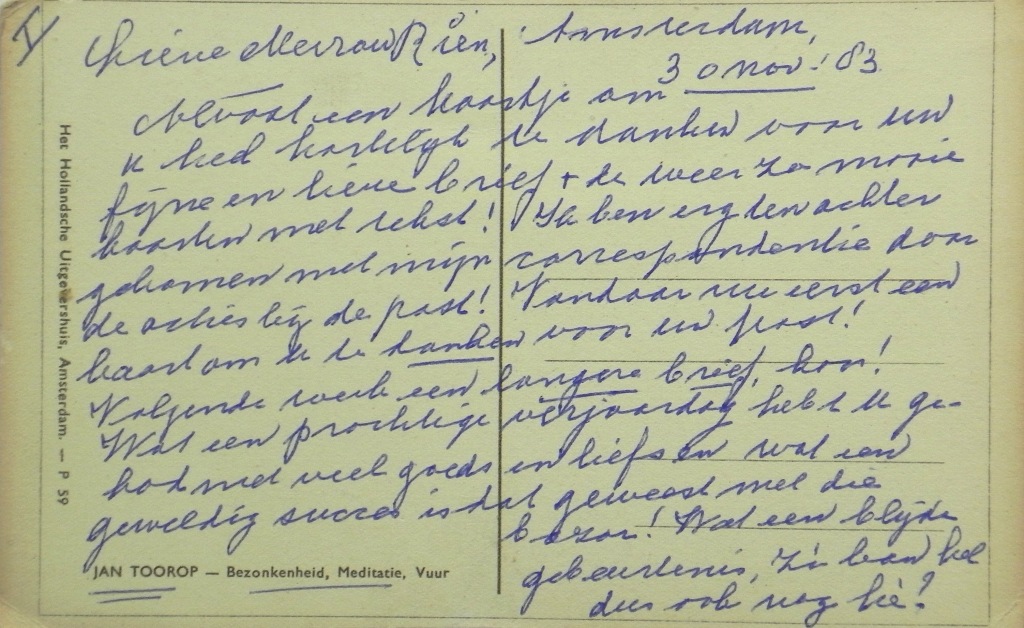 I
Liève Mevrouw Rien,
Amsterdam,
30 nov. '83
Alvast een kaartje om
u heel hartelijk te danken voor uw
fijne en lieve brief + de weer zo mooie
kaarten met tekst! Ik ben erg ten achter
gekomen met mijn correspondentie door
de acties bij de post! Vandaar nu eerst een
kaart om U te danken voor uw post!
Volgende week een langere brief, hoor!
Wat een prachtige verjaardag hebt U ge-
had met veel goeds en liefs en wat een
geweldig succes is dat geweest met die
bazar! Wat een blijde
gebeurtenis, zo kan het
dus ook nog hè!
JAN TOOROP — Bezonkenheid, Meditatie, Vuur
Het Hollandsche Uitgevershuis, Amsterdam. — P 59